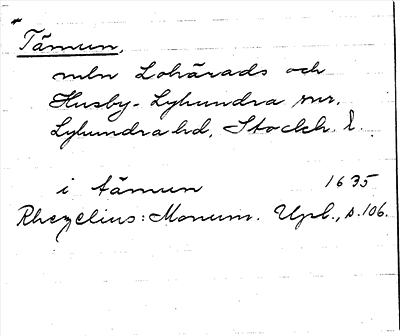 *Tämun,
mln Lohärads och
Husby-Lyhundra snr.
Lyhundra hd, Stockh. l.
i tämun 1635
Rhezelius: Monum. Upl., s. 106.